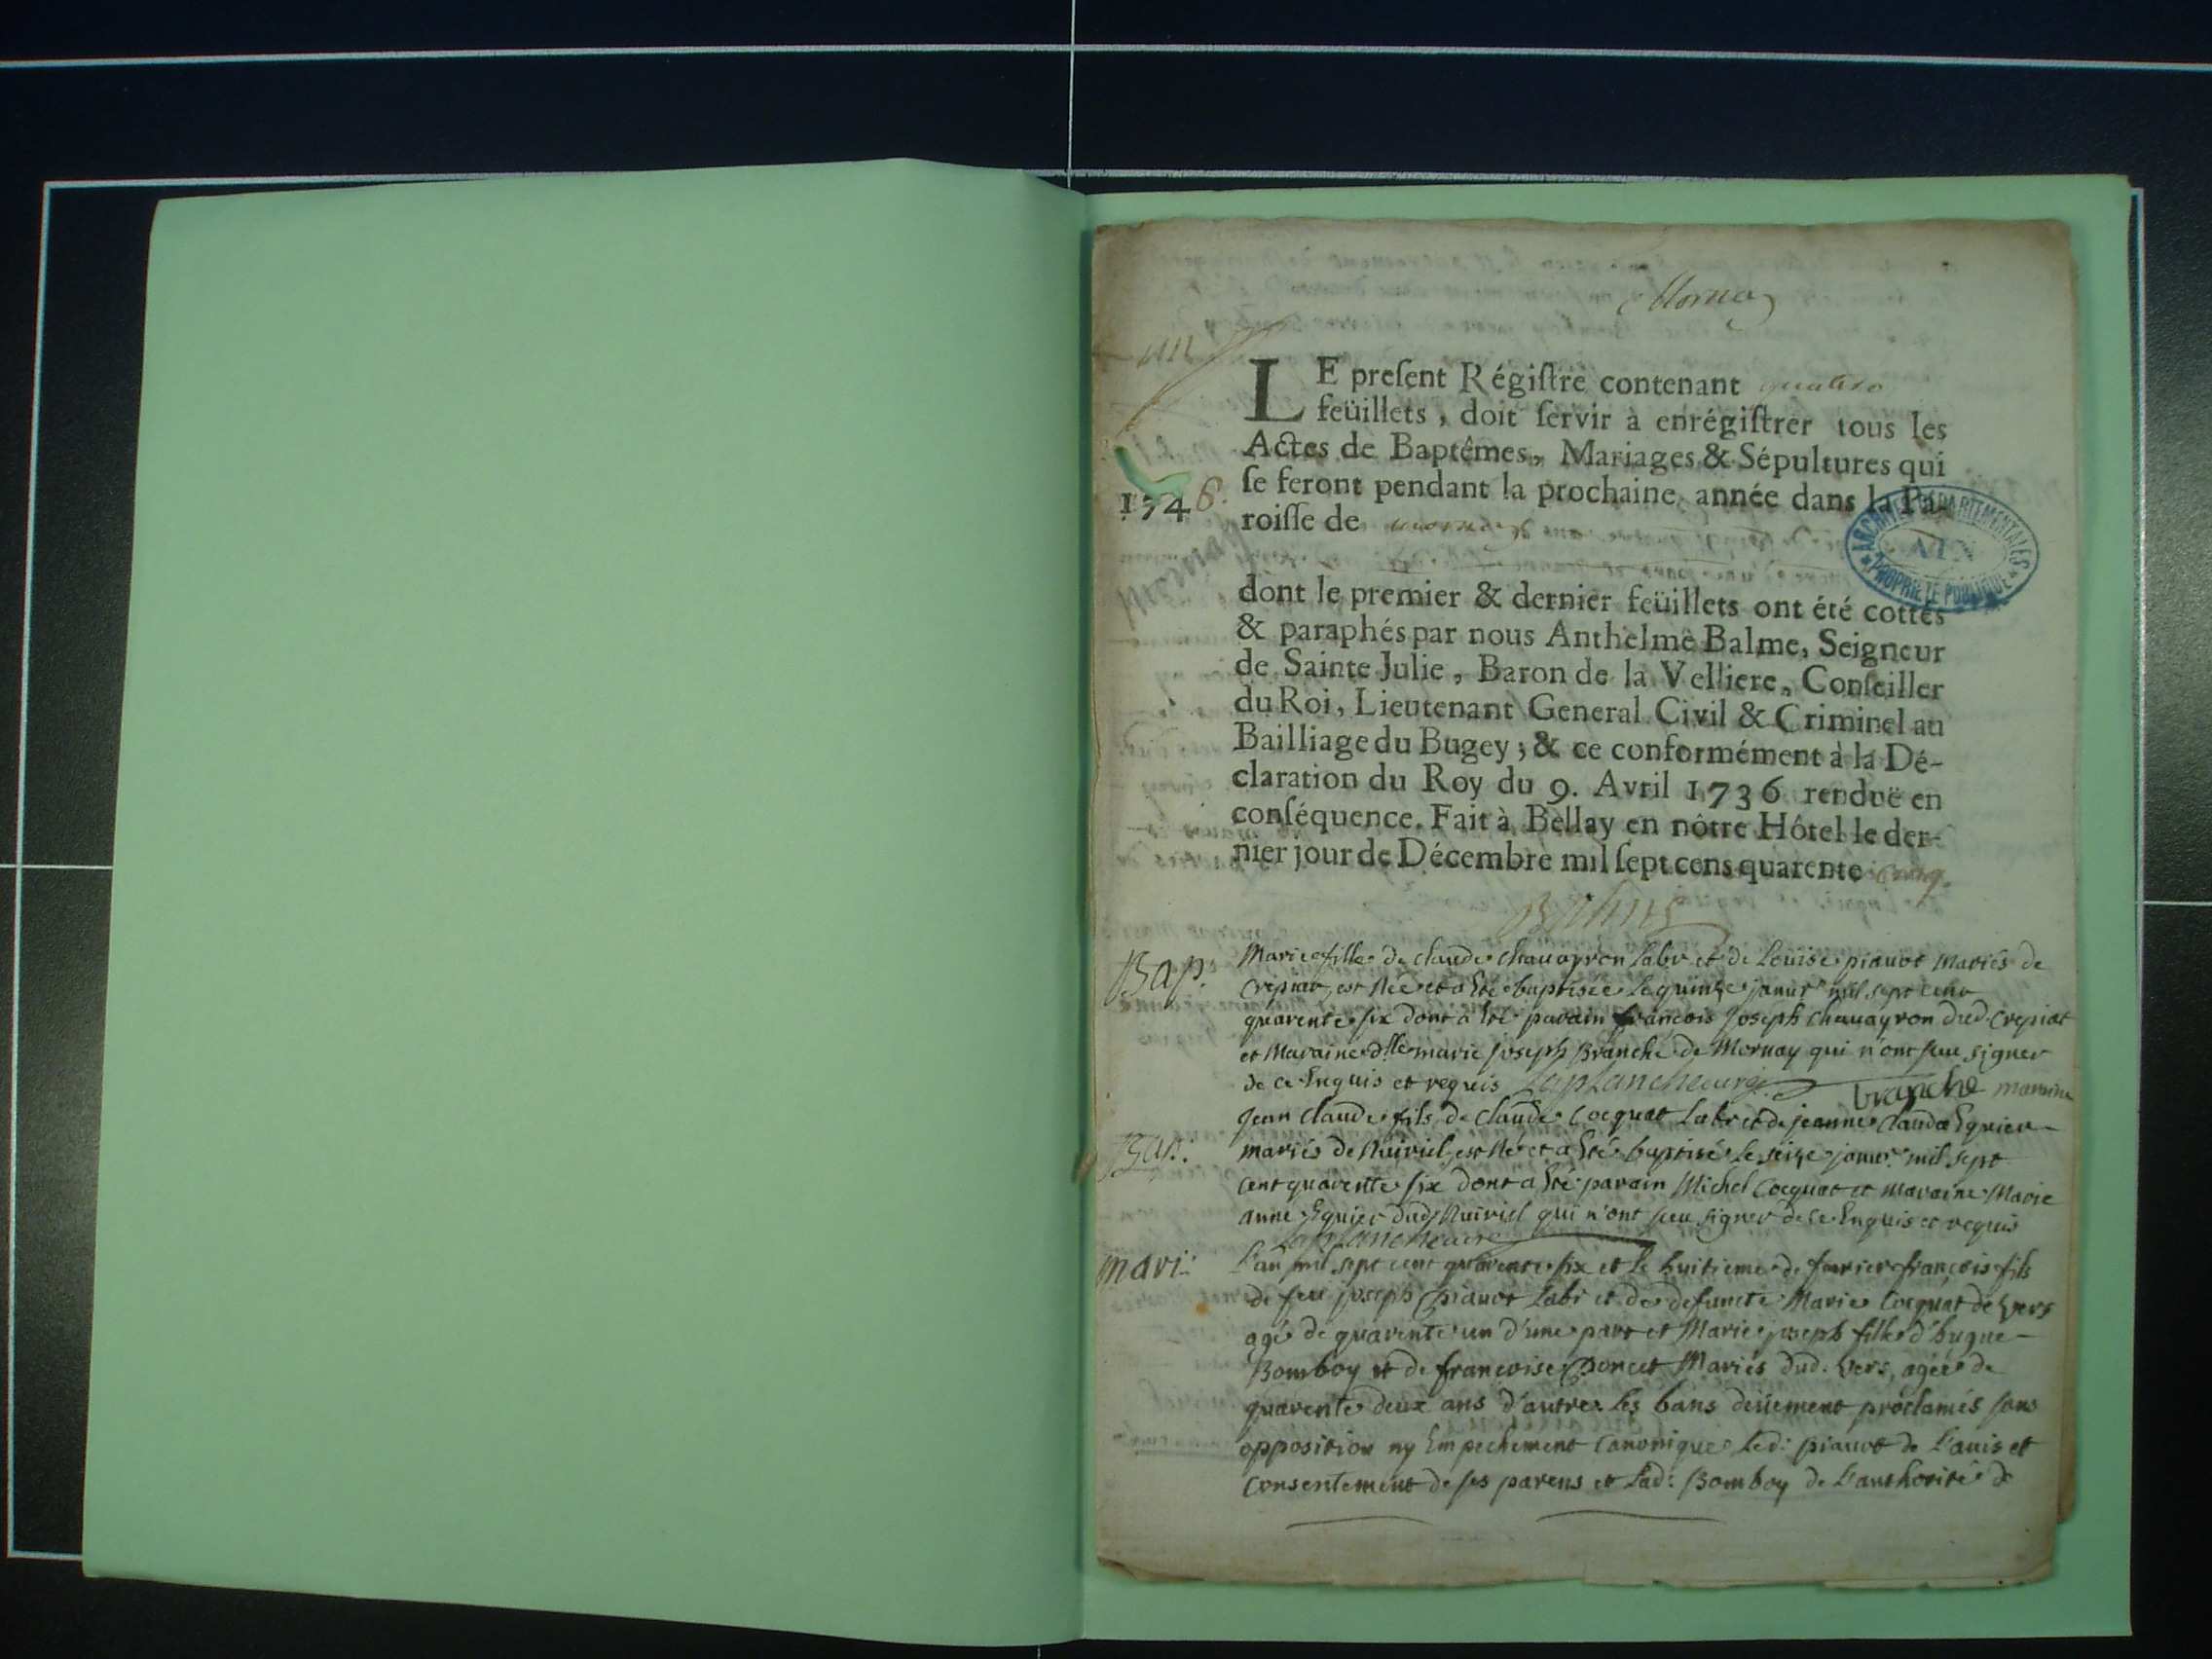 Mornay
LE preſent Régiſtre contenant quatre
feüillets, doit ſervir à enrégiſtrer tous les
Actes de Baptêmes, Mariages & Sépultures qui
ſe feront pendant la prochaine année dans la Pa-
1746.
roiſſe de mornay
Mornay
ARCHIVES DÉPARTEMENTALES
AIN
PROPRIÉTÉ PUBLIQUE
dont le premier & dernier feüillets ont été cottés
& paraphés par nous Anthelme Balme, Seigneur
de Sainte Julie, Baron de la Velliere, Conſeiller
du Roi, Lieutenant General Civil & Criminel au
Bailliage du Bugey; & ce conformément à la Dé-
claration du Roy du 9. Avril 1736 renduë en
conſéquence. Fait à Bellay en nôtre Hôtel le der-
nier jour de Décembre mil ſept cens quarente cinq.
Balme
Bap. Marie fille de claude chauayron labr et de Louise piauot mariés de
crepiat, est née et a été baptisée le quinze januier mil sept cent
quarente six dont a été parain francois joseph chauayron dud. crepiat
et maraine dlle marie joseph Branche de Mornay qui n'ont sceu signer
de ce enquis et requis Laplanche curé branche maraine
Bap. jean claude fils de claude Cocquat labr et de jeanne claude Eguier
mariés de Nuiriel, est né et a été baptisé le seize januier mil sept
cent quarente six dont a été parain Michel Cocquat et maraine Marie
anne Eguier dud. Nuiriel qui n'ont sceu signer de ce enquis et requis
Laplanche curé
mari: L'an mil sept cent quarente six et le huitieme de feurier françois fils
de feu joseph piauot labr et de defuncte Marie Cocquat de Vers
agé de quarente un d'une part et Marie joseph fille d'hugue
Bomboy et de francoise Poncet Mariés dud. Vers, agée de
quarente deux ans d'autre les bans deüement proclamés sans
opposition ny Empechement canonique led: piauot de l'auis et
consentement de ses parens et lad: Bomboy de l'authorité de